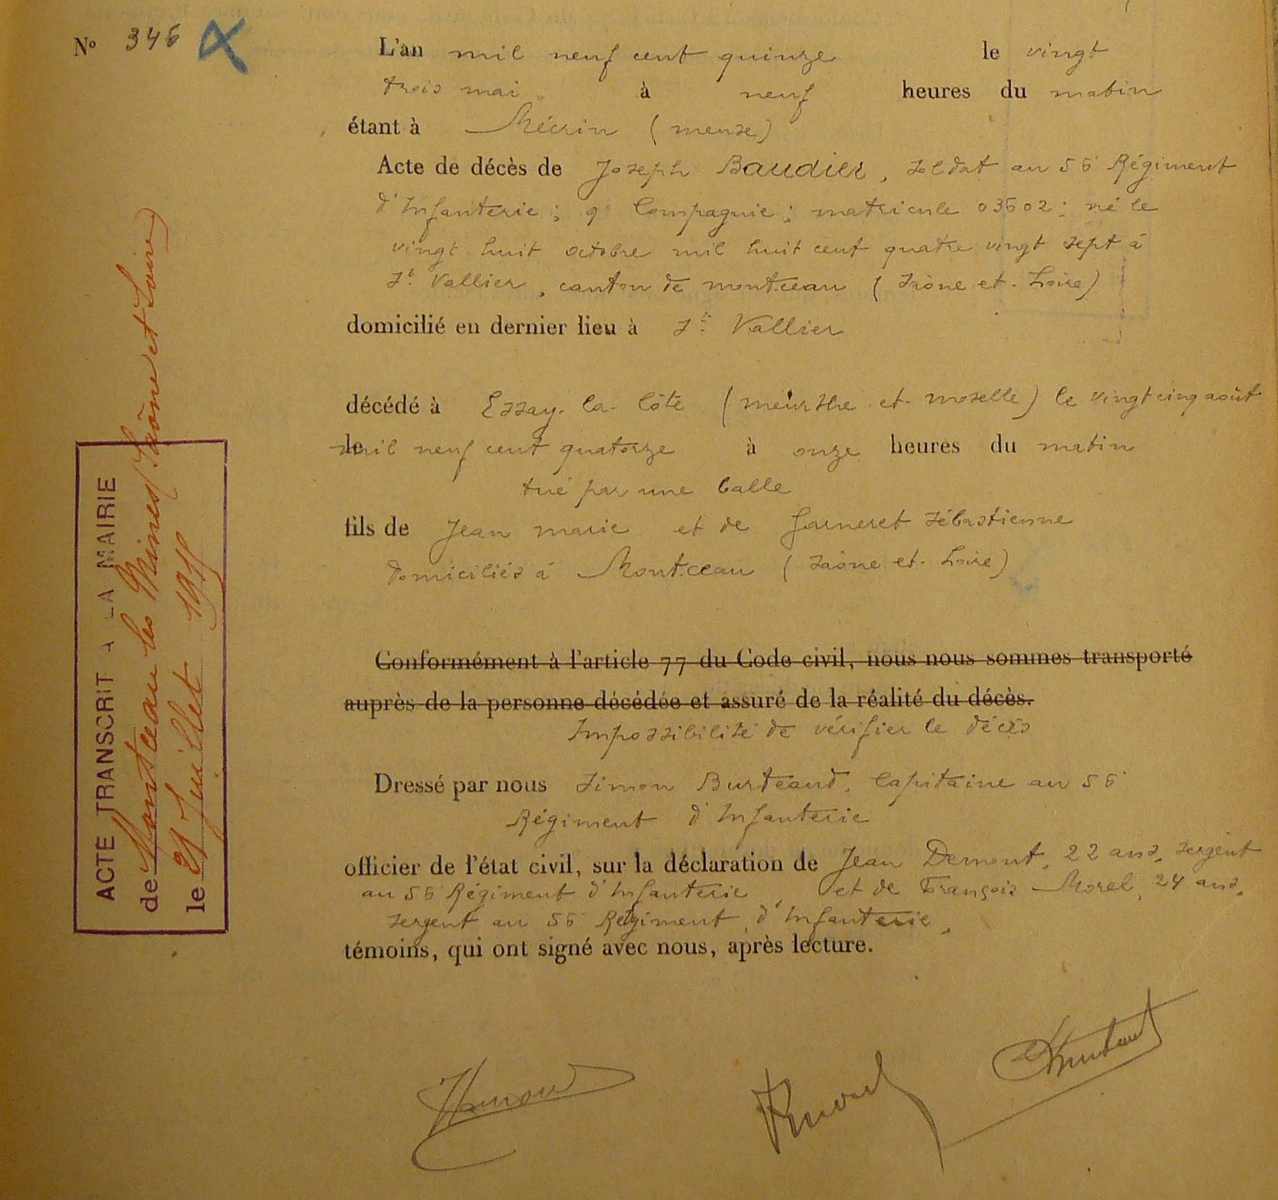 N° 346
L'an mil neuf cent quinze le vingt
trois mai à neuf heures du matin
étant à Mécrin (meuse)
Acte de décès de Joseph Baudier, soldat au 56 Régiment
d'Infanterie ; 9 Compagnie ; matricule 03602 ; né le
vingt huit octobre mil huit cent quatre vingt sept à
St Vallier, canton de montceau (Saône et Loire)
domicilié en dernier lieu à St Vallier
décédé à Essay-la-Côte (meurthe et moselle) le vingt cinq août
le mil neuf cent quatorze à onze heures du matin
tué par une balle
fils de Jean marie et de Garneret Sébastienne
domiciliés à Montceau (Saône et Loire)
Conformément à l'article 77 du Code civil, nous nous sommes transporté
auprès de la personne décédée et assuré de la réalité du décès.
Impossibilité de vérifier le décès
Dressé par nous Simon Burteaud, Capitaine au 56
Régiment d'Infanterie
officier de l'état civil, sur la déclaration de Jean Demont, 22 ans, sergent
au 56 Régiment d'Infanterie, et de François Morel, 24 ans,
sergent au 56 Régiment d'Infanterie,
témoins, qui ont signé avec nous, après lecture.
ACTE TRANSCRIT A LA MAIRIE
de Montceau les Mines (Saône et Loire)
le 21 Juillet 1915